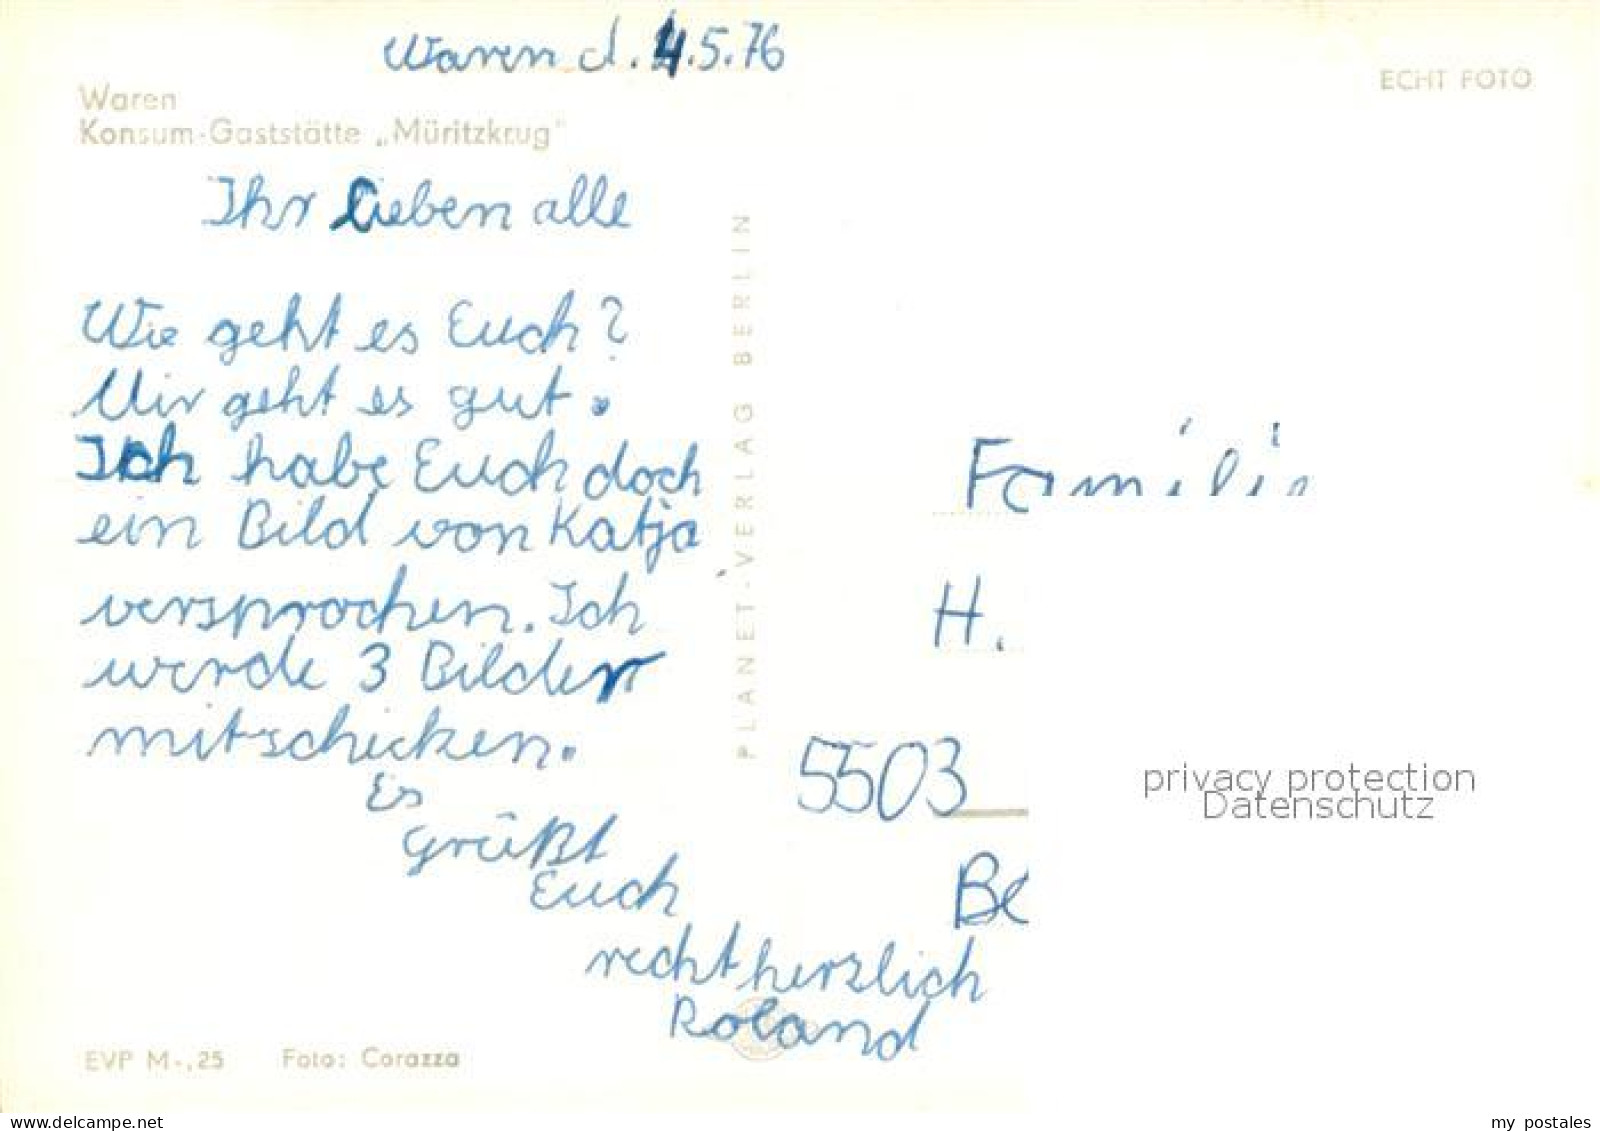 Waren d. 4.5.76
Waren
Konsum-Gaststätte „Müritzkrug"
ECHT FOTO
Ihr Lieben alle
Wie geht es Euch?
Mir geht es gut.
Ich habe Euch doch
ein Bild von Katja
versprochen. Ich
werde 3 Bilder
mitschicken.
Es
grüßt
Euch
recht herzlich
Roland
PLANET-VERLAG BERLIN
Famili
H.
5503
Be
privacy protection
Datenschutz
EVP M-,25 Foto: Corazza
www.delcampe.net
my_postales